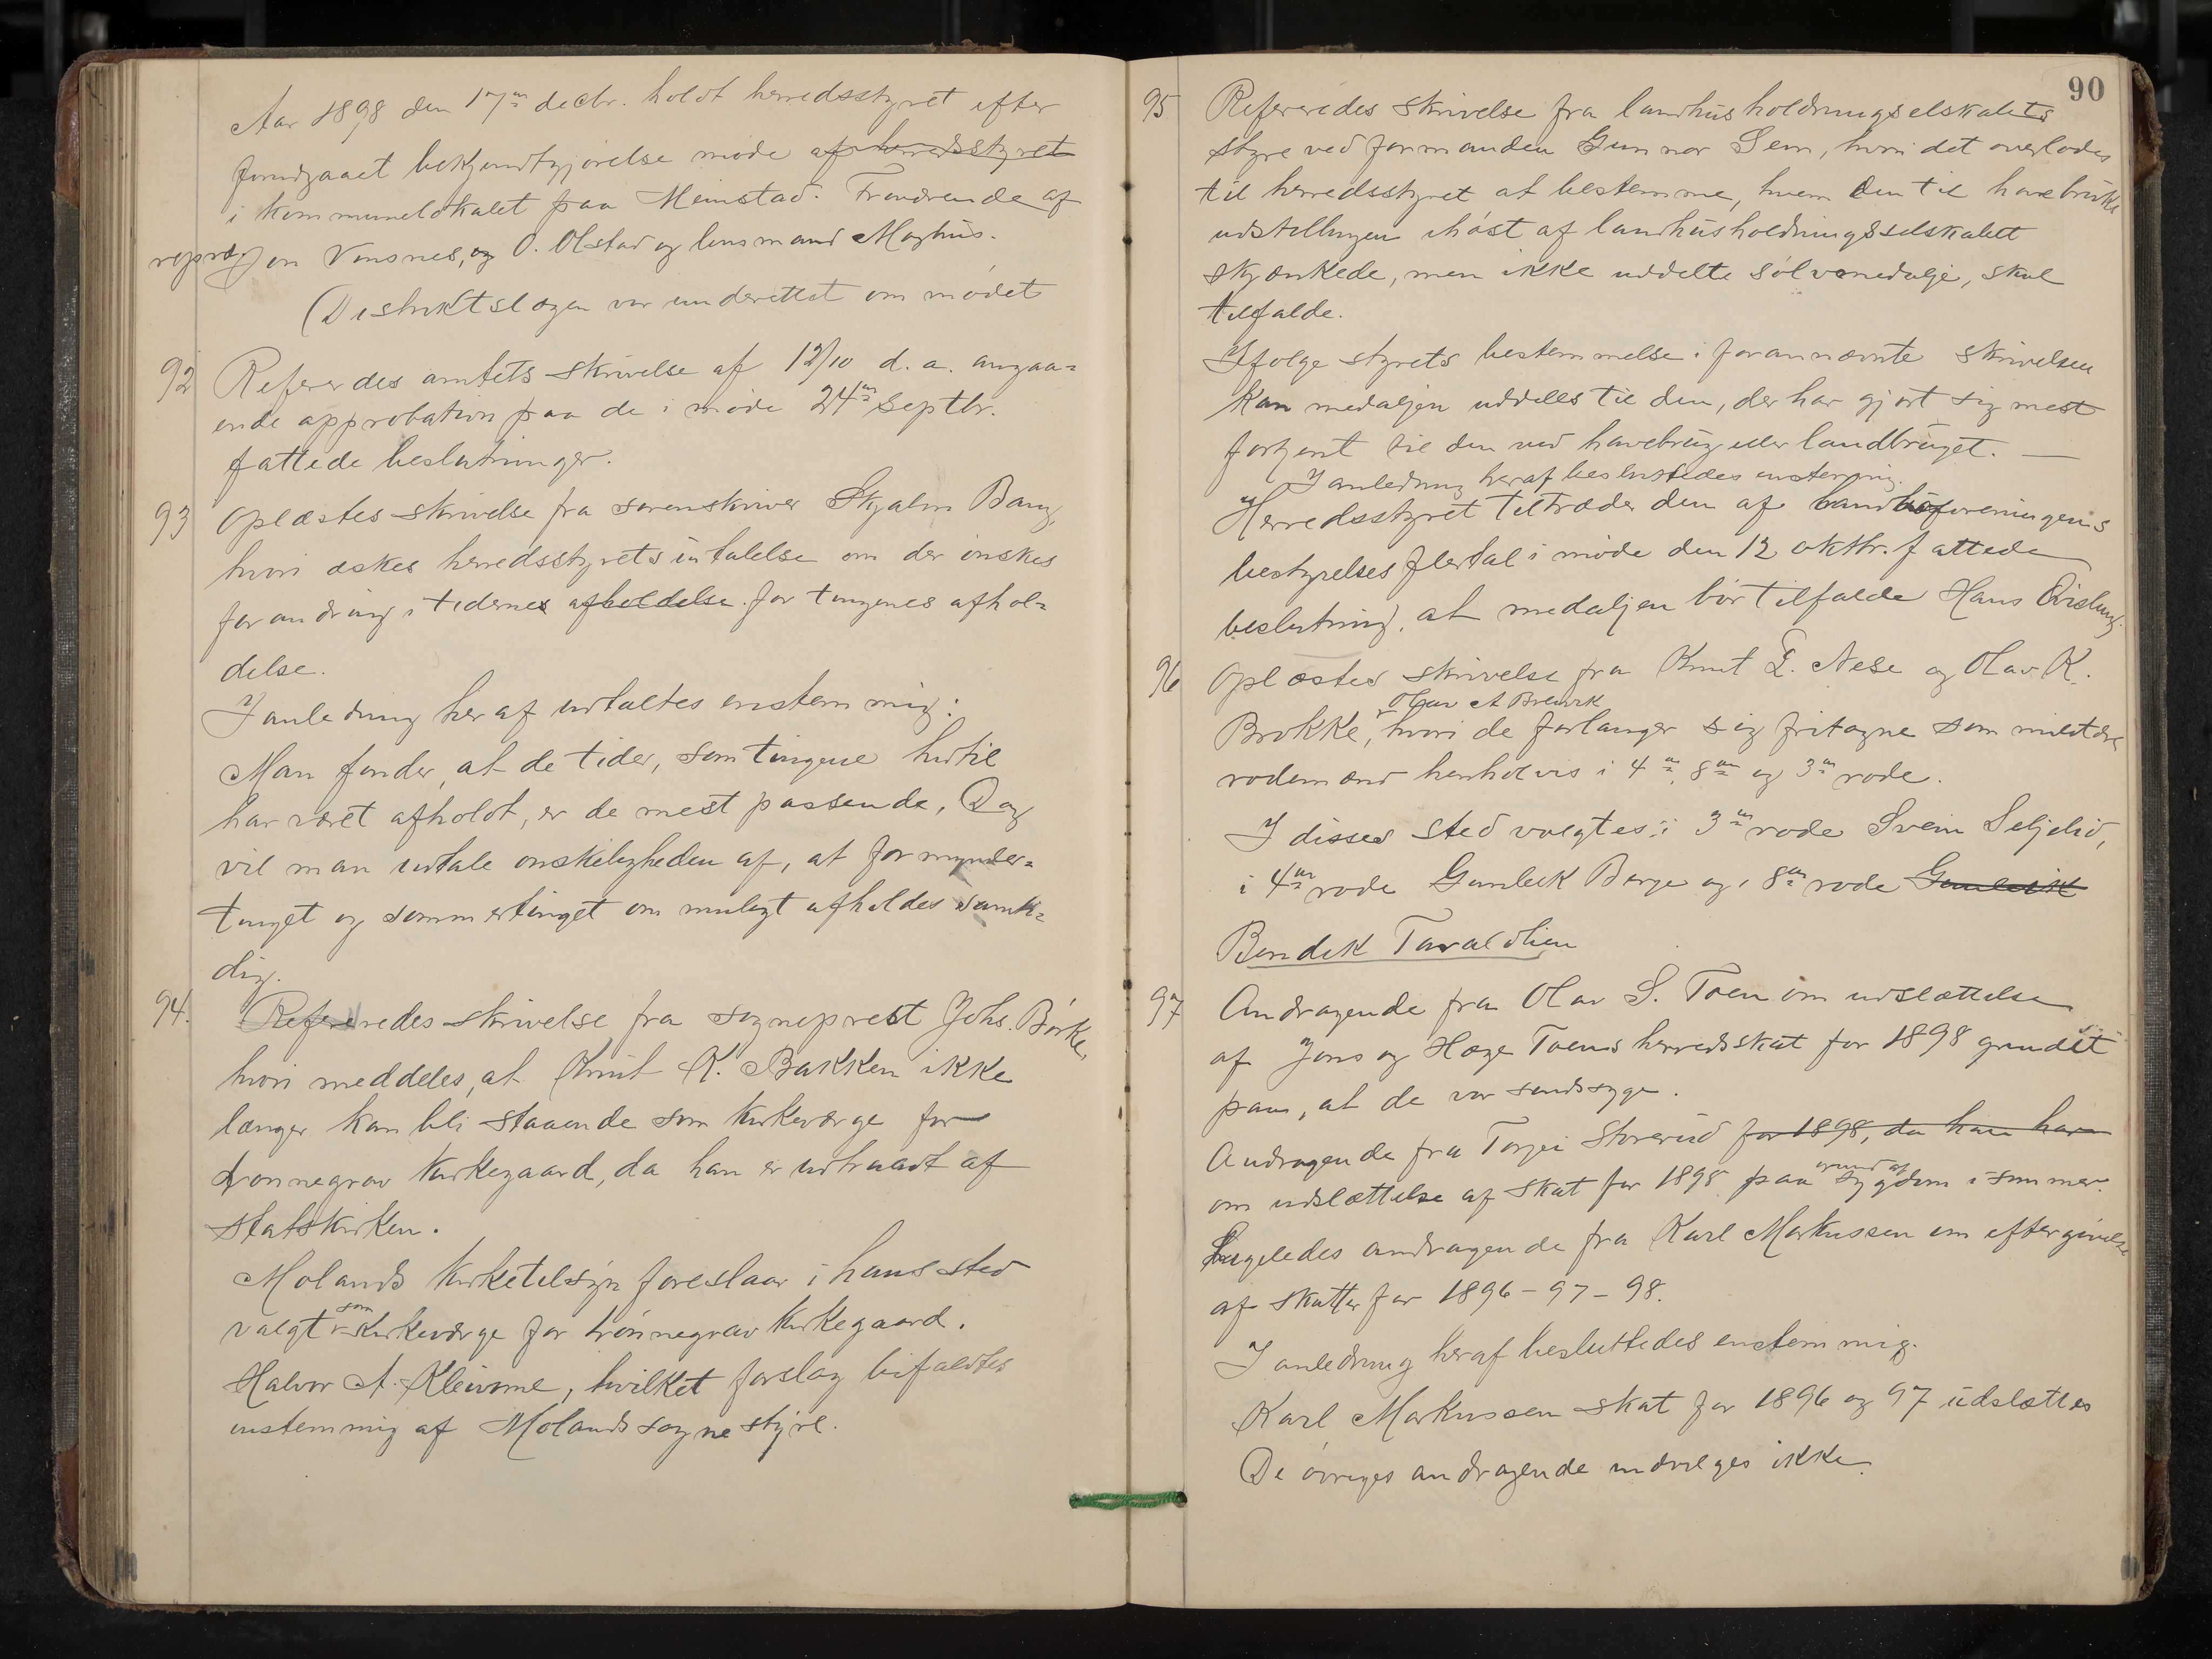 Aar 1898 den 17de decbr. holdt herredsstyret efter
forudgaaet bekjendtgjørelse møde af herredsstyret
i kommunelokalet paa Meinstad. Fraværende af
repræ. Jon Vinsnes, og O. Olstad og lensmand Moghus.
(Distriktslægen var underettet om mødet
92 Refereredes amtets skrivelse af 12/10 d. a. angaa=
ende approbation paa de i møde 24de septbr.
fattede beslutninger.
93 Oplæstes skrivelse fra sorenskriver Skjalm Bang,
hvori æskes herredsstyrets udtalelse om der ønskes
forandring i tidernes afholdelse for tingenes afhol=
delse.
I anledning heraf udtaltes enstemmig:
Man finder, at de tider, som tingene hidtil
har været afholdt, er de mest passende. Dog
vil man udtale ønskeligheden af, at formynder=
tinget og sommertinget om muligt afholdes samti=
dig.
94. Refereredes skrivelse fra sogneprest Johs. Børke,
hvori meddeles, at Knut K. Bakken ikke
længer kan bli staaende som kirkeværge for
trønnegrav kirkegaard, da han er udtraadt af
statskirken.
Molands kirketilsyn foreslaar i hans sted
valgt som kirkeværge for trønnegrav kirkegaard.
Halvor A. Kleivane, hvilket forslag bifaldtes
enstemmig af Molands sognestyre.
90
95 Refereredes skrivelse fra landhusholdningselskabets
styre ved formanden Gunnar Sem, hvori det overlades
til herredsstyret at bestemme, hvem den til havebruks
udstillingen ihøst af landhusholdningsselskabet
skjænkede, men ikke uddelte sølvmedalje, skal
tilfalde.
Ifølge styrets bestemmelse i forannævnte skrivelsen
kan medaljen uddeles til den, der har gjort sig mest
fortjent til den ved havebrug eller landbruget. —
I anledning heraf besluttedes enstemmig.
Herredsstyret tiltræder den af landboforeningens
bestyrelses flertal i møde den 12 oktbr. fattede
beslutning, at medaljen bør tilfalde Hans Qvisling.
96 Oplæstes skrivelse fra Knut E. Nese og Olav K.
Olav A Breivik
Brokke, hvori de forlanger sig fritagne som militære
rodemænd henholdvis i 4de, 8de og 3de rode.
I disses sted valgtes: i 3de rode Svein Seljelid,
i 4de rode Gunleik Berge og i 8de rode Gunleik
Bendik Tavaldlien
97 Andragende fra Olav S. Toen om udslættelse
af Jons og Hæge Toens herredsskat for 1898 grundet
paa, at de var sindssyge.
Andragende fra Torjei Storerud for 1898, da han har
om udslættelse af skat for 1898 paa grund af sygdom i sommer.
Ligeledes andragende fra Karl Markussen om eftergivelse
af skatter for 1896 - 97 - 98.
I anledning heraf besluttedes enstemmig.
Karl Markussen skat for 1896 og 97 udslættes
De øvriges andragende indvilges ikke.